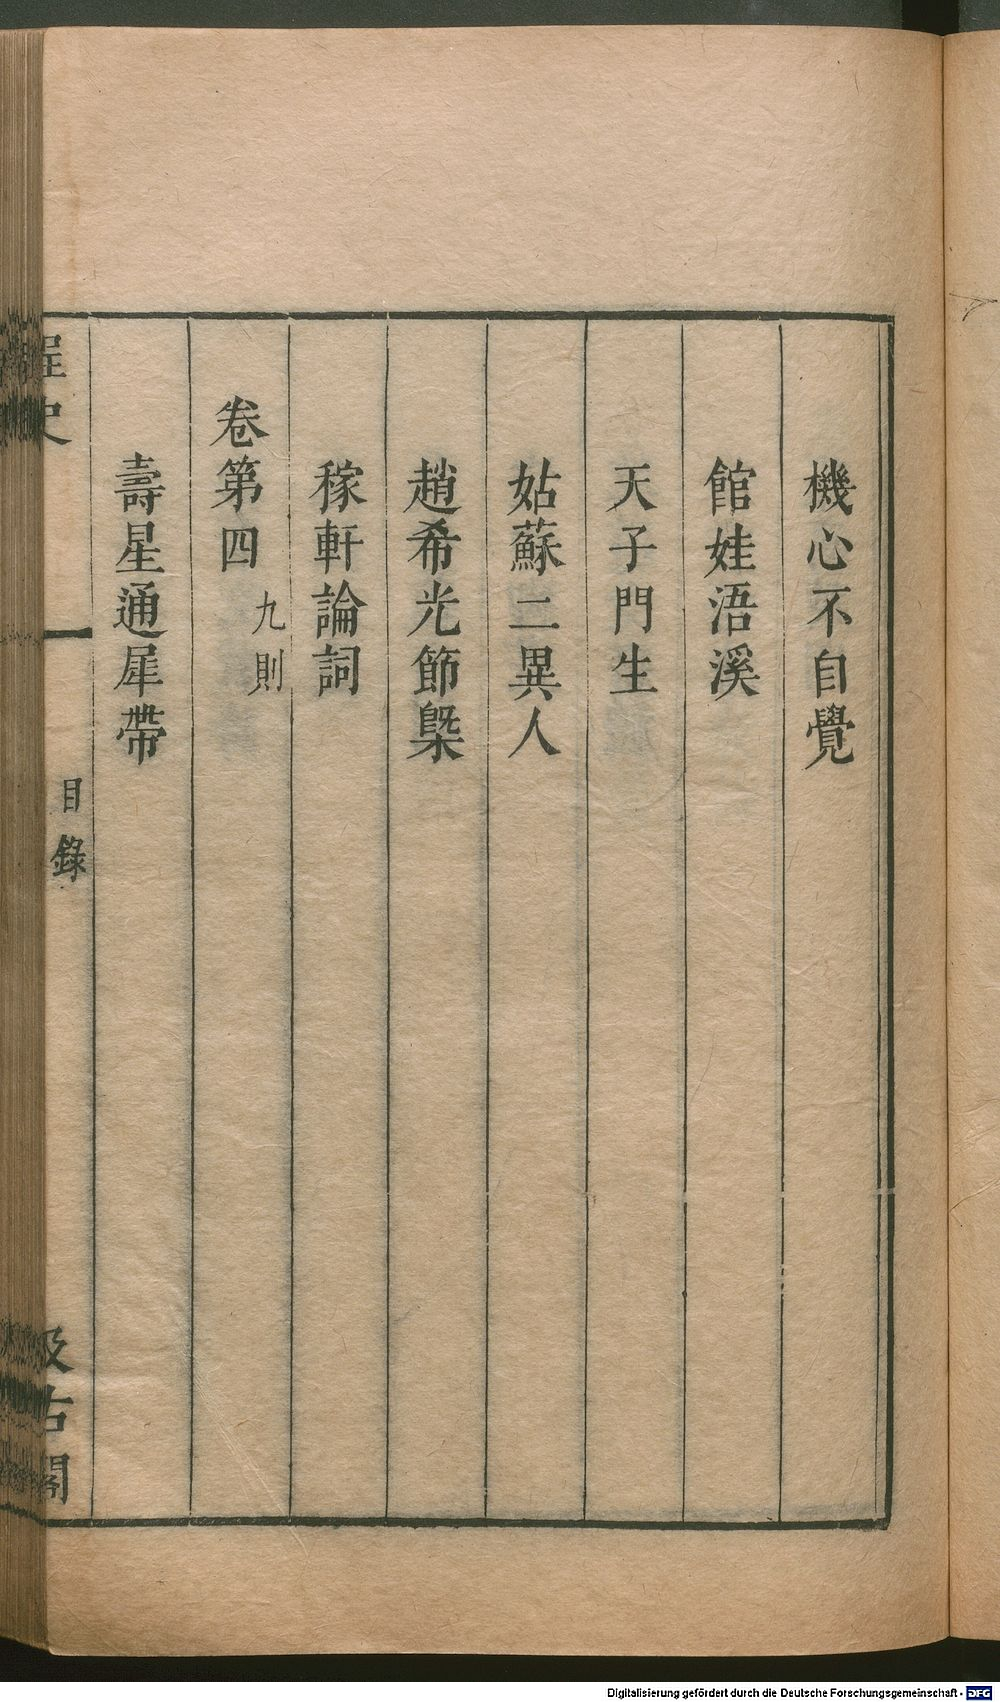 機心不自覺
館娃浯溪
天子門生
姑蘇二異人
趙希光節槩
稼軒論詞
卷第四 九則
壽星通犀帶
桯史
目錄
汲古閣
Digitalisierung gefördert durch die Deutsche Forschungsgemeinschaft - DFG